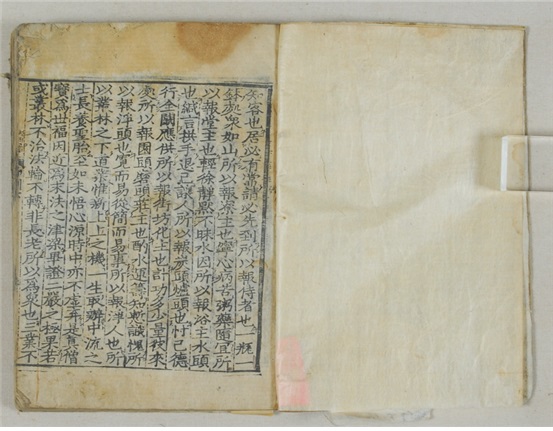 知客也居必有常請必先到所以報侍者也一瓶一
鉢處衆如山所以報寮主也寧心病苦粥藥隨宜所
以報堂主也輕徐靜黙不昧水因所以報浴主水頭
也緘言拱手退己讓人所以報炭頭爐頭也忖己德
行全闕應供所以報街坊化主也計功多少量彼來
處所以報園頭磨頭莊主也酌水運籌知慚識愧所
以報淨頭也寬而易從簡而易事所以報淨人也所
以叢林之下道業惟新上上之機一生取辦中流之
士長養聖胎至如未悟心源時中亦不虛弃是真僧
寶爲世福田近爲末法之津梁畢證二嚴之極果若
或叢林不治法輪不轉非長老所以爲衆也三業不